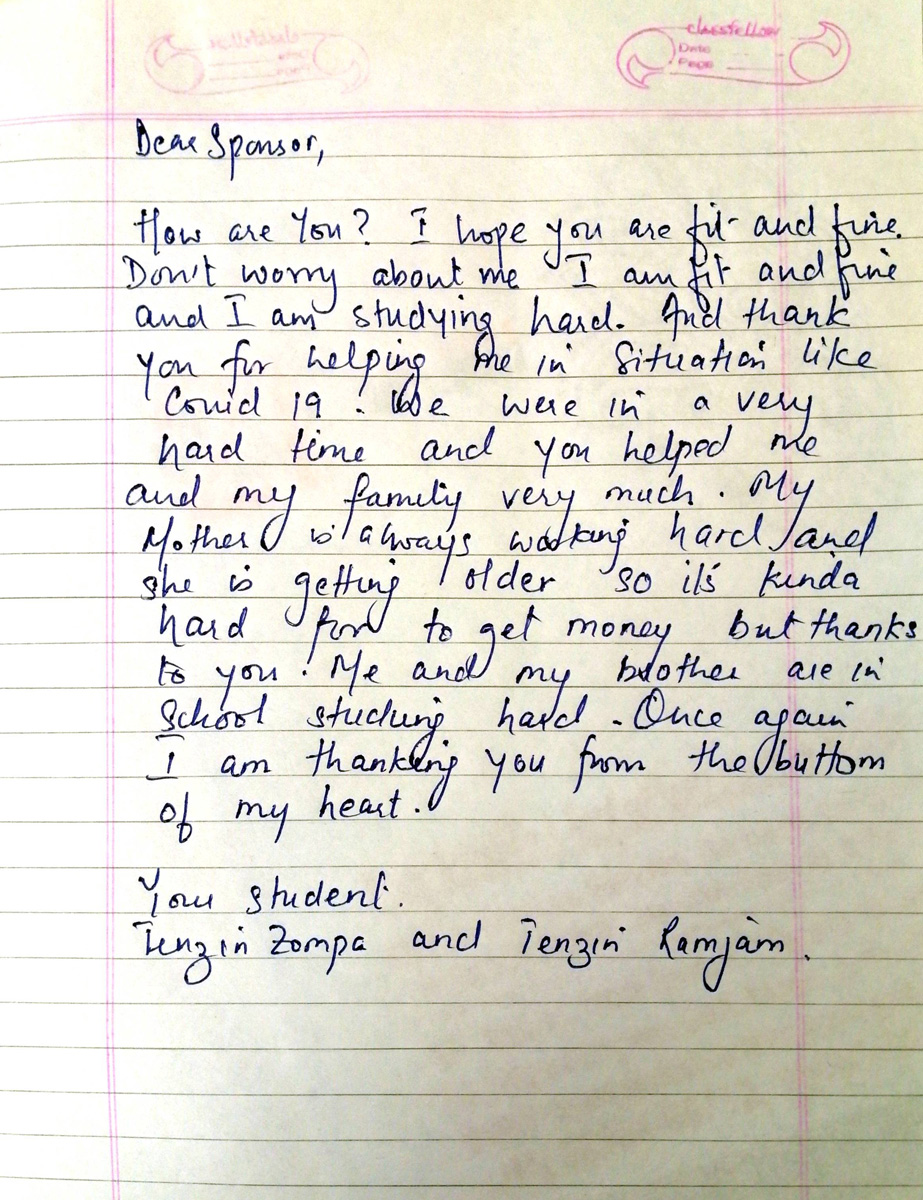 classfellow
Date
Page
Dear Sponsor,
How are You? I hope you are fit and fine.
Don't worry about me I am fit and fine
and I am studying hard. And thank
you for helping me in Situation like
Covid 19. We were in a very
hard time and you helped me
and my family very much. My
Mother is always working hard and
she is getting older so it's kinda
hard for to get money but thanks
to you. Me and my brother are in
School studing hard. Once again
I am thanking you from the buttom
of my heart.
Your student.
Tenzin Zompa and Tenzin Ramjam.